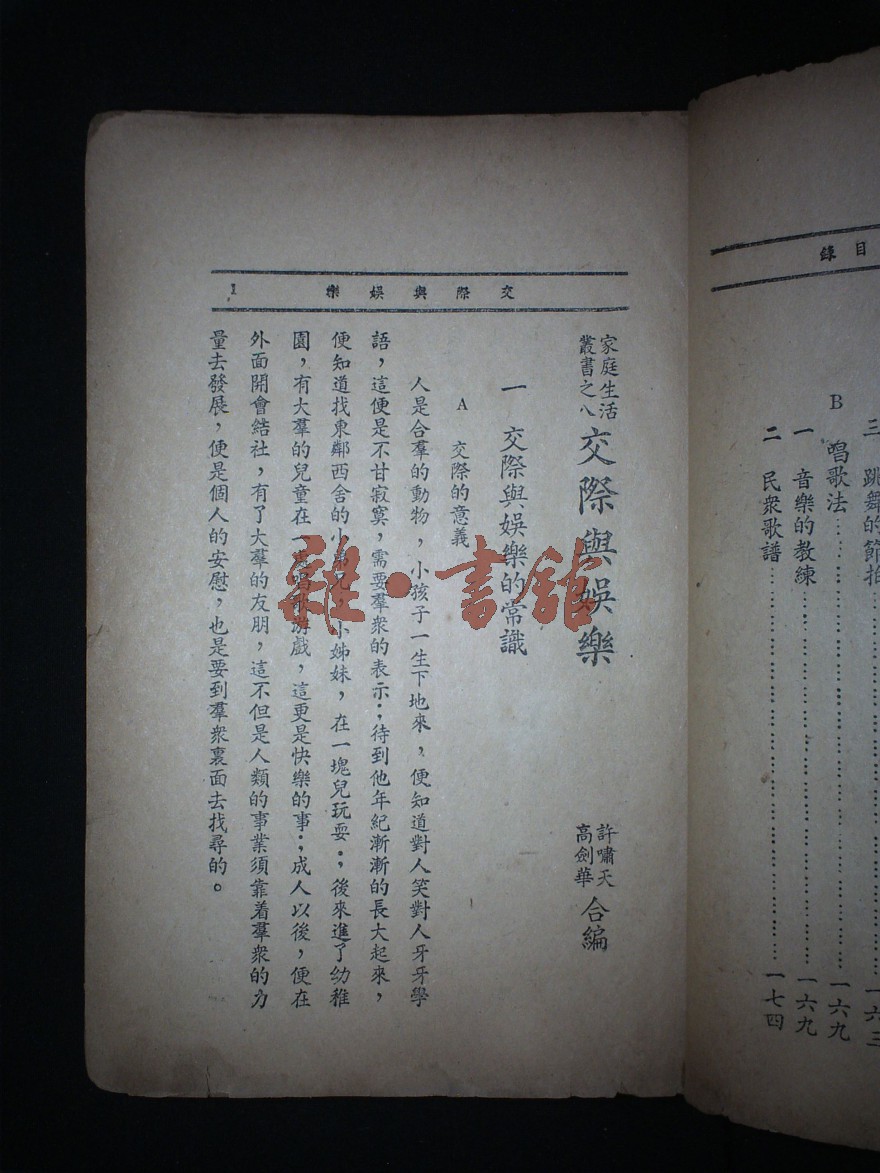 目錄
三 跳舞的節拍……一六三
B 唱歌法……一六九
一 音樂的教練……一六九
二 民衆歌譜……一七四
交際與娛樂
1
家庭生活
叢書之八
交際與娛樂
許嘯天
高劍華
合編
一 交際與娛樂的常識
A 交際的意義
人是合羣的動物,小孩子一生下地來,便知道對人笑對人牙牙學
語,這便是不甘寂寞,需要羣衆的表示;待到他年紀漸漸的長大起來,
便知道找東鄰西舍的小弟兄,小姊妹,在一塊兒玩耍;後來進了幼稚
園,有大羣的兒童在一處唱歌游戲,這更是快樂的事;成人以後,便在
外面開會結社,有了大羣的友朋,這不但是人類的事業須靠着羣衆的力
量去發展,便是個人的安慰,也是要到羣衆裏面去找尋的。
雜·書舘